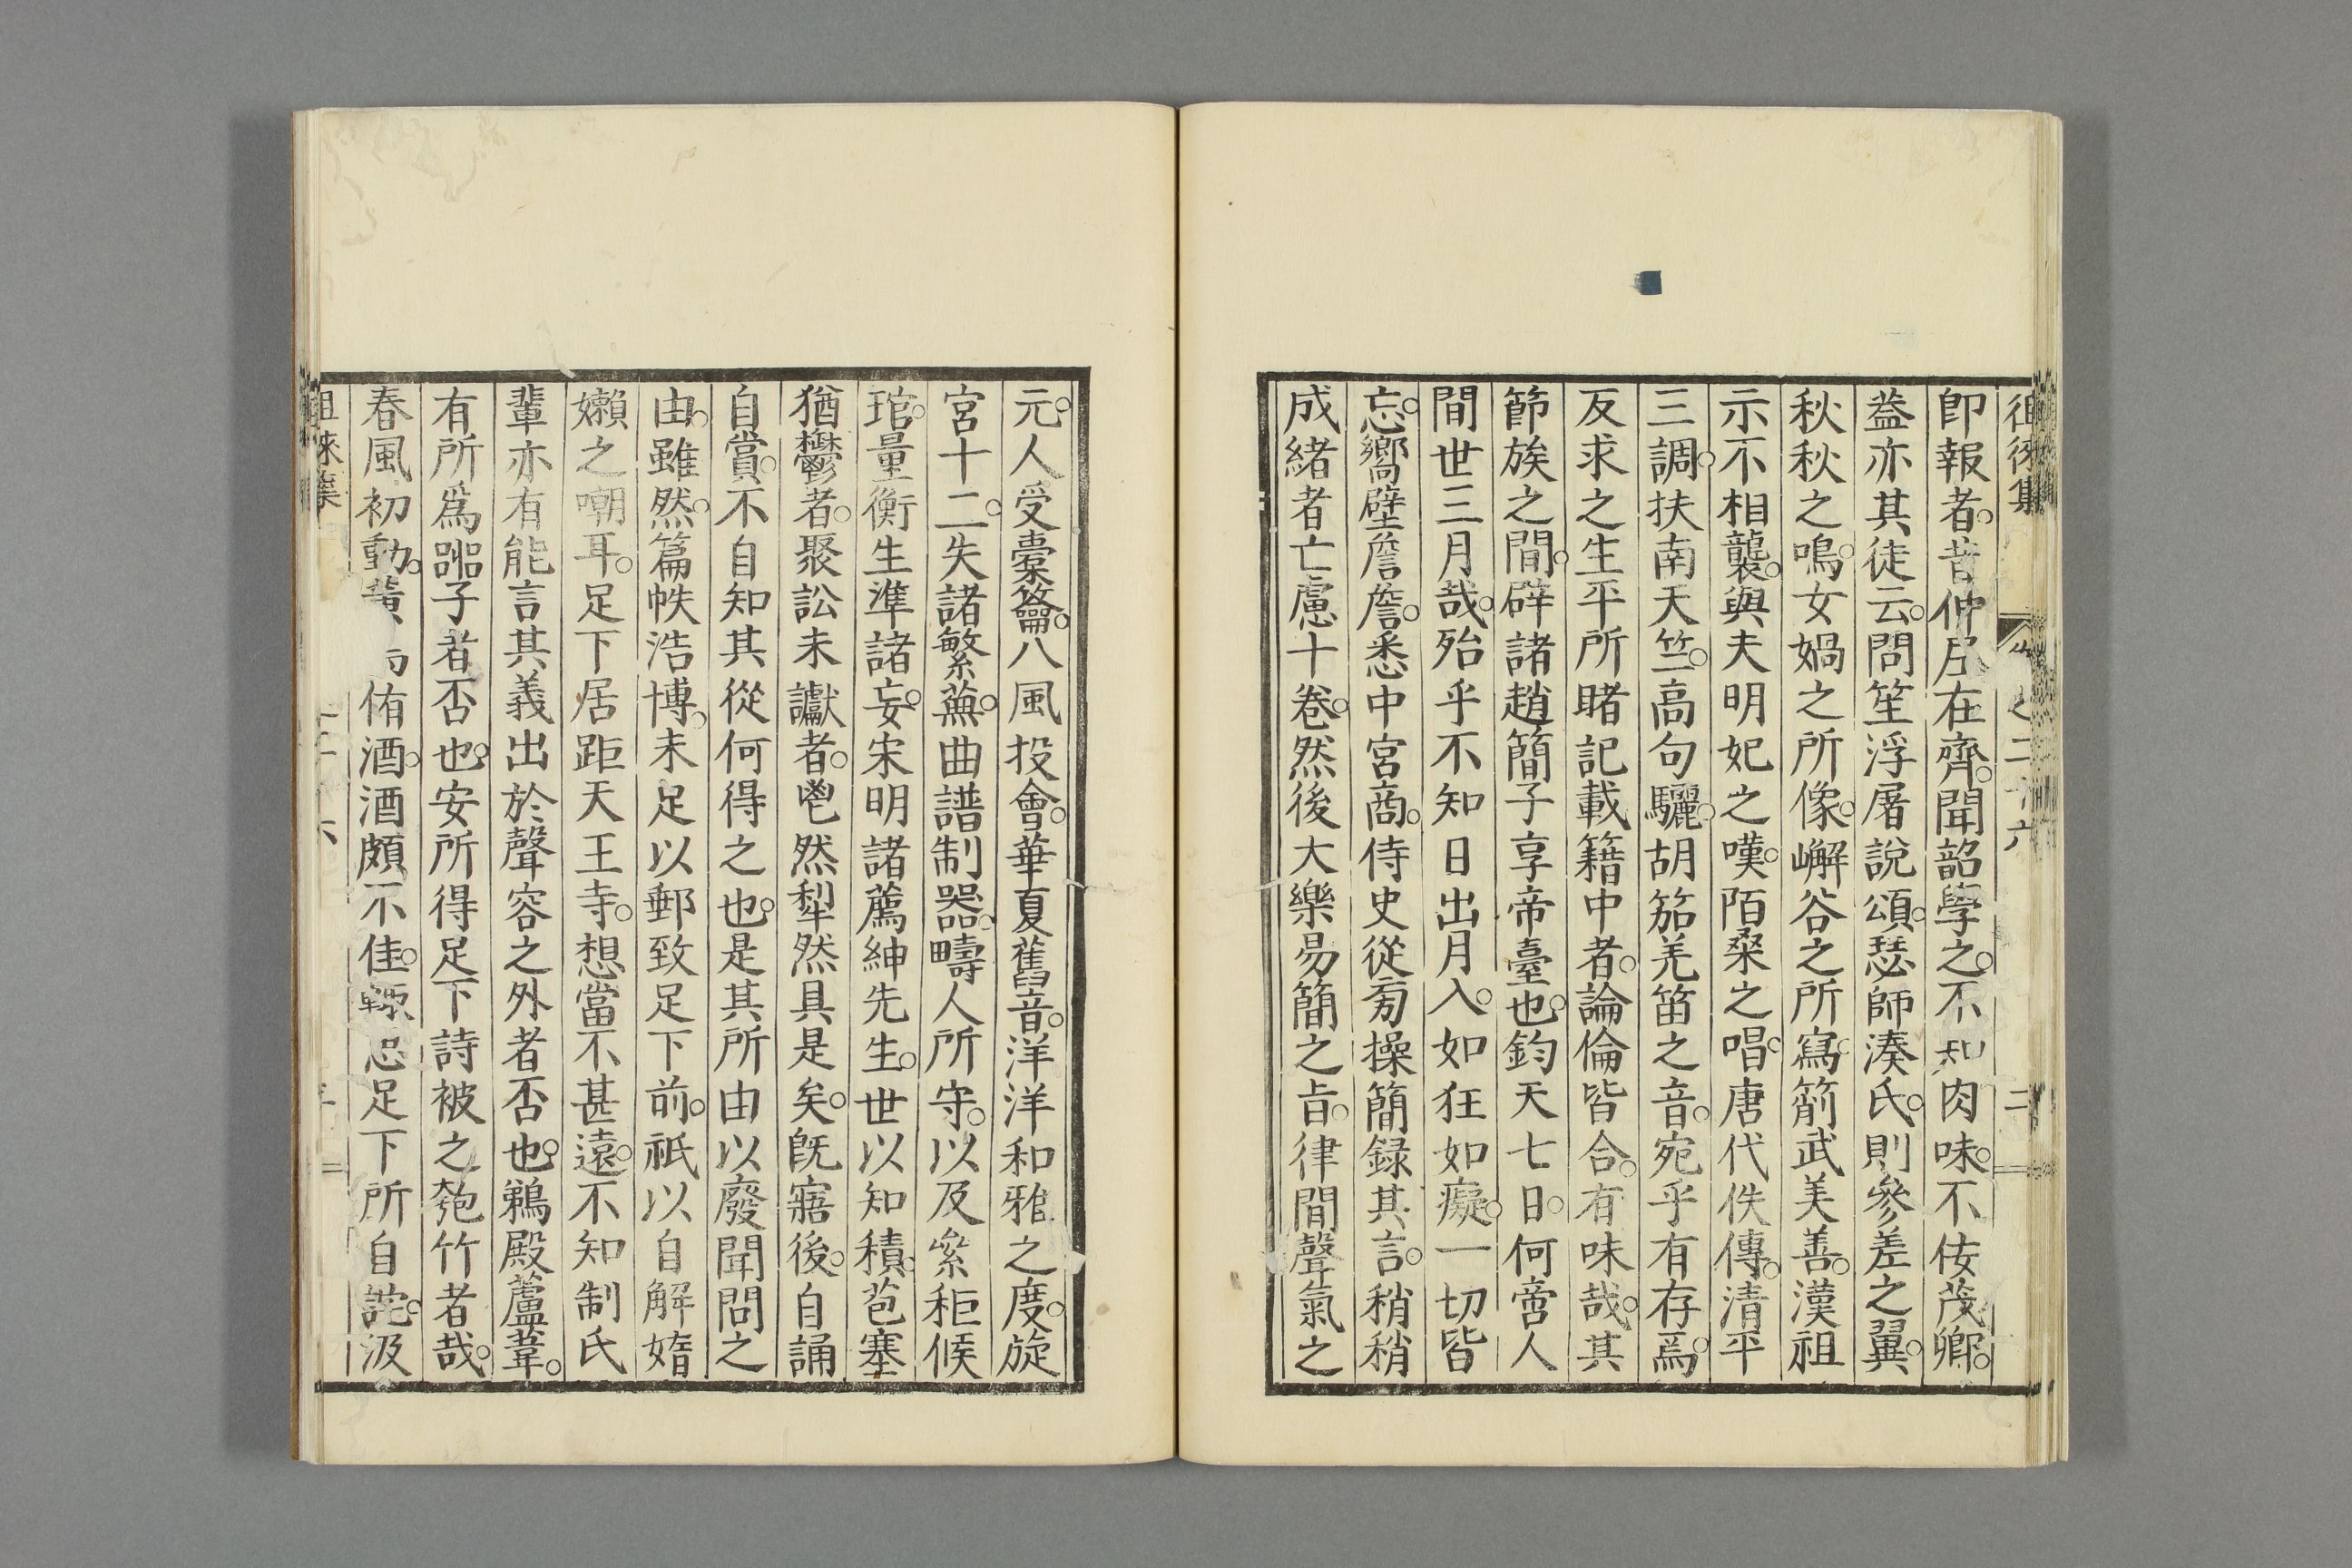 卽報者○昔仲尼在齊○聞韶學之○不知肉味○不佞茂卿○
葢亦其徒云○問笙浮屠說頌○瑟師湊氏○則參差之翼○
秋秋之鳴○女媧之所像○嶰谷之所寫○箾武美善○漢祖
示不相襲○與夫明妃之嘆○陌桑之唱○唐代佚傳○清平
三調○扶南天竺○高句驪○胡笳羌笛之音○宛乎有存焉○
反求之生平所睹記載籍中者○論倫皆合○有味哉○其
節族之間○辟諸趙簡子享帝臺也○鈞天七日○何啻人
間世三月哉○殆乎不知日出月入○如狂如癡○一切皆
忘○嚮壁詹詹○悉中宮商○侍史從旁操簡錄其言○稍稍
成緒者亡慮十卷○然後大樂易簡之旨○律間聲氣之
元○人受橐籥○八風投會○華夏舊音○洋洋和雅之度○旋
宮十二○失諸繁蕪○曲譜制器○疇人所守○以及纍秬候
琯○量衡生準諸妄○宋明諸薦紳先生○世以知積苞塞
猶鬱者○聚訟未讞者○鬯然犁然具是矣○旣寤後○自誦
自賞○不自知其從何得之也○是其所由以廢聞問之
由○雖然○篇帙浩博○未足以郵致足下前○祇以自解媠
嬾之嘲耳○足下居距天王寺○想當不甚遠○不知制氏
輩亦有能言其義出於聲容之外者否也○鵜殿蘆葦○
有所爲嘂子者否也○安所得足下詩被之匏竹者哉○
春風初動○黃 侑酒○酒頗不佳○輙 足下所自詑○汲